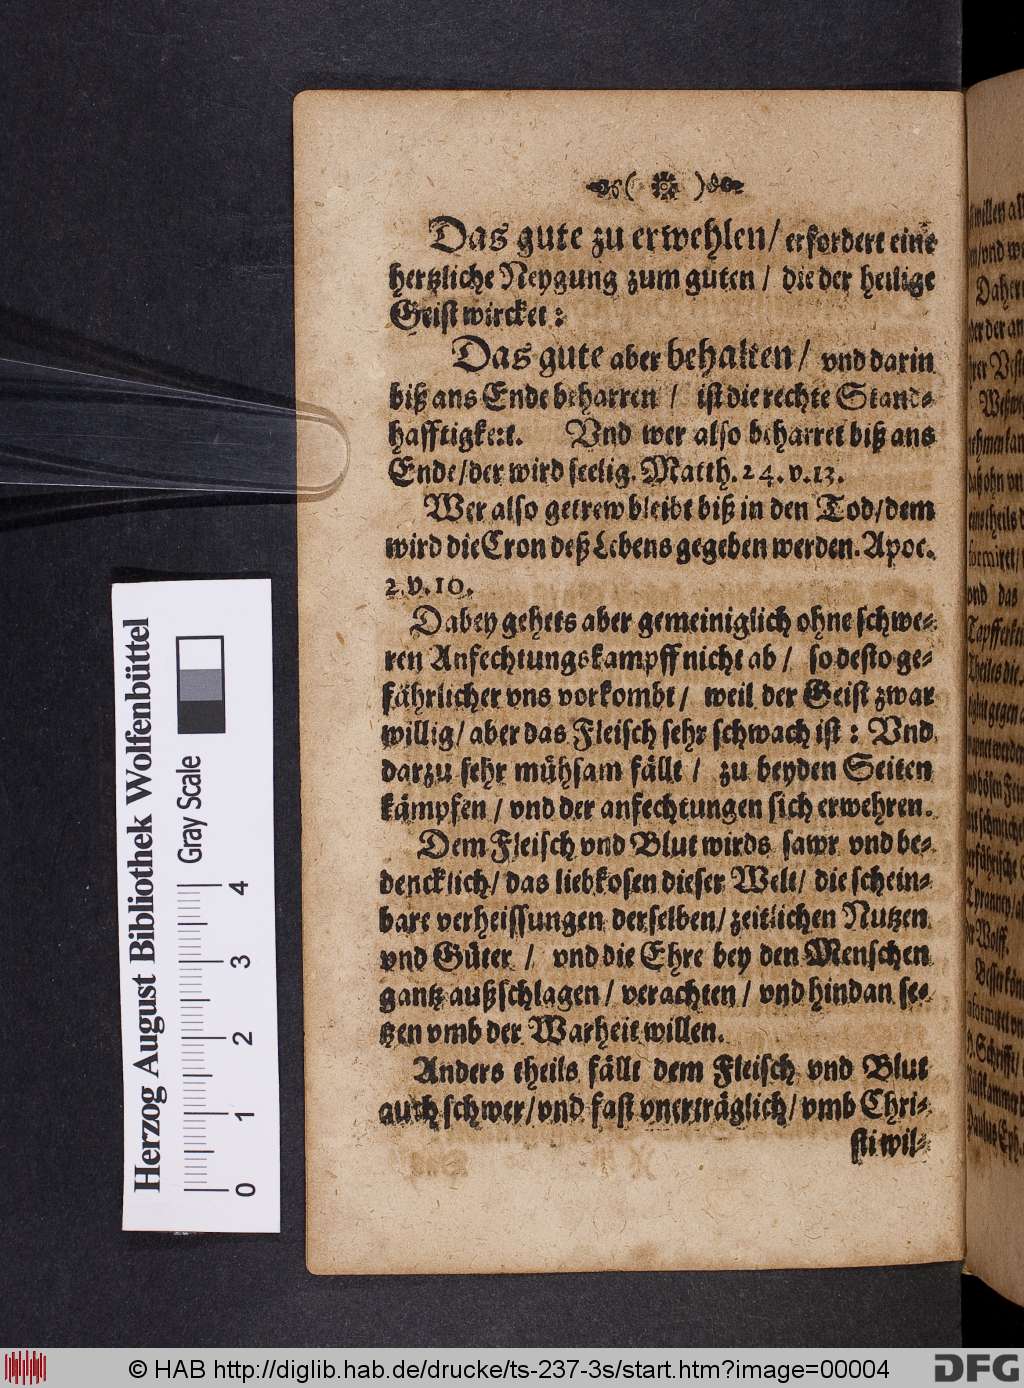 Das gute zu erwehlen/ erfordert eine
hertzliche Neygung zum guten / die der heilige
Geist wircket:
Das gute aber behalten/ vnd darin
biß ans Ende beharren / ist die rechte Stand-
hafftigkeit. Vnd wer also beharret biß ans
Ende/der wird seelig. Matth. 24. v. 13.
Wer also getrew bleibt biß in den Tod/dem
wird die Cron deß Lebens gegeben werden. Apoc.
2. v. 10.
Dabey gehets aber gemeiniglich ohne schwe-
ren Anfechtungskampff nicht ab / so desto ge-
fährlicher vns vorkombt / weil der Geist zwar
willig/ aber das Fleisch sehr schwach ist: Vnd
darzu sehr mühsam fällt / zu beyden Seiten
kämpfen / vnd der anfechtungen sich erwehren.
Dem Fleisch vnd Blut wirds sawr vnd be-
dencklich/ das liebkosen dieser Welt/ die schein-
bare verheissungen derselben/ zeitlichen Nutzen
vnd Güter / vnd die Ehre bey den Menschen
gantz außschlagen / verachten / vnd hindan se-
tzen vmb der Warheit willen.
Anders theils fällt dem Fleisch vnd Blut
auch schwer/vnd fast vnerträglich/ vmb Chri-
sti wil-
Herzog August Bibliothek Wolfenbüttel
Gray Scale
0 1 2 3 4
© HAB http://diglib.hab.de/drucke/ts-237-3s/start.htm?image=00004
DFG